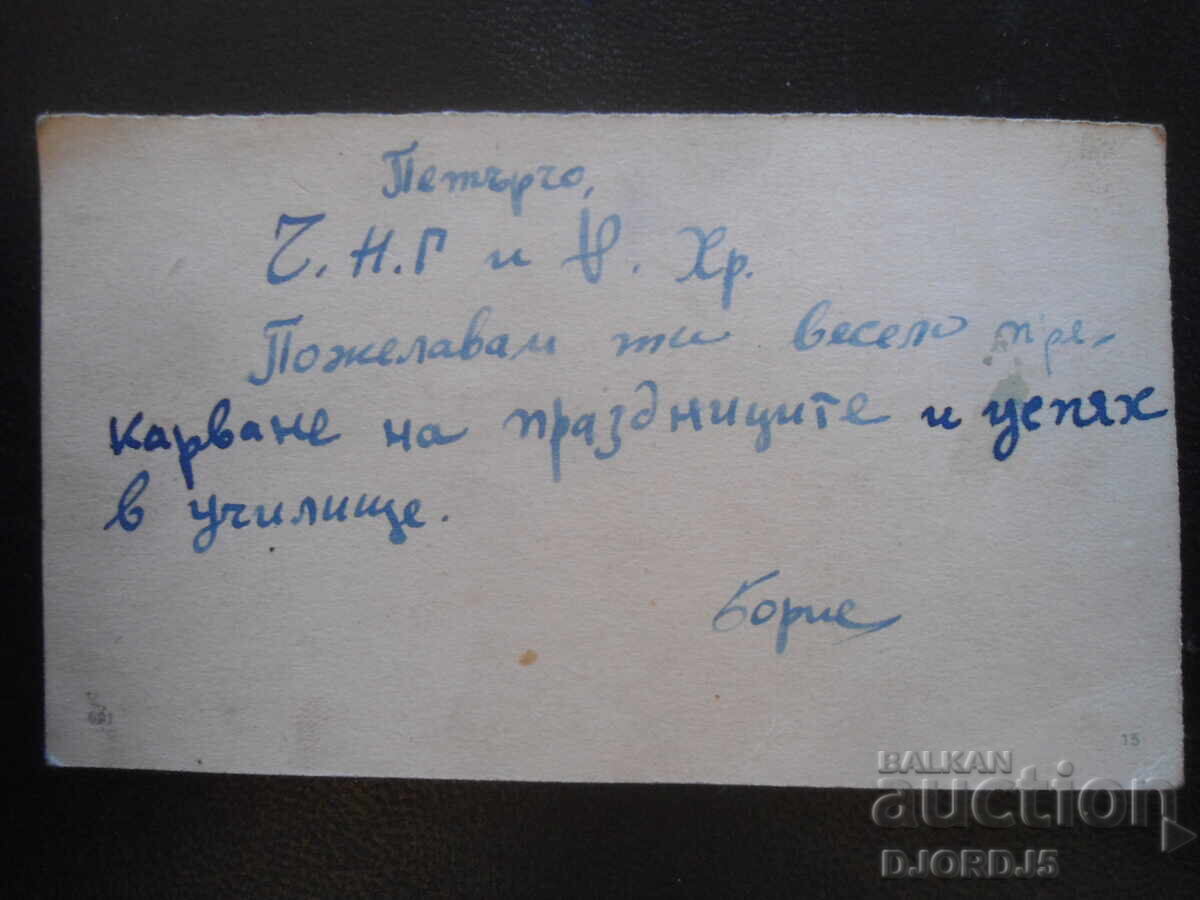 Петърчо,
Ч.Н.Г и Р. Хр.
Пожелавам ти весело пре-
карване на празниците и успях
в училище.
Борис
15
BALKAN
auction
DJORDJ5